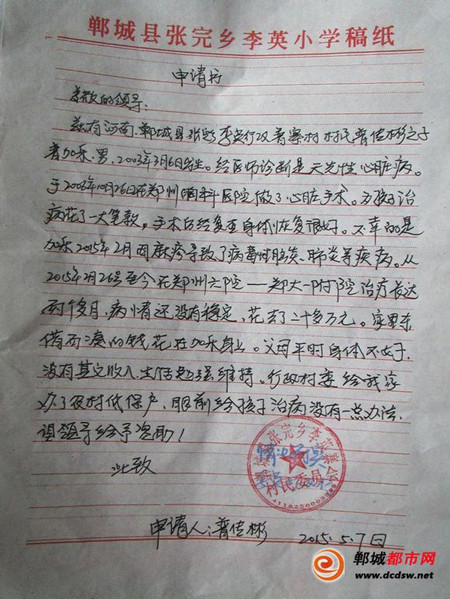 郸城县张完乡李英小学稿纸
申请书
尊敬的领导:
兹有河南郸城县张完李英行政普寨村村民普传彬之子
普加乐,男,2003年3月6日生。经医师诊断是先光性心脏病。
于2008年10月26日在郑州胸科医院做了心脏手术。为孩子治
病花了一大笔钱,手术后经复查身体恢复很好。不幸的是
加乐2015年2月因麻疹导致了病毒性脑炎、肺炎等疾病。从
2015年2月26号至今在郑州六院——郑大一附院治疗长达
两个多月,病情还没有稳定,花去了二十多万元。家里东
借西凑的钱花在加乐身上。父母平时身体不好,
没有其它收入,生活勉强维持。行政村委给我家
办了农村低保户,眼前给孩子治病没有一点办法,
请领导给予资助!
此致
情况属实
村民委员会
申请人:普传彬
2015.5.7日
郸城都市网
www.dcdsw.net